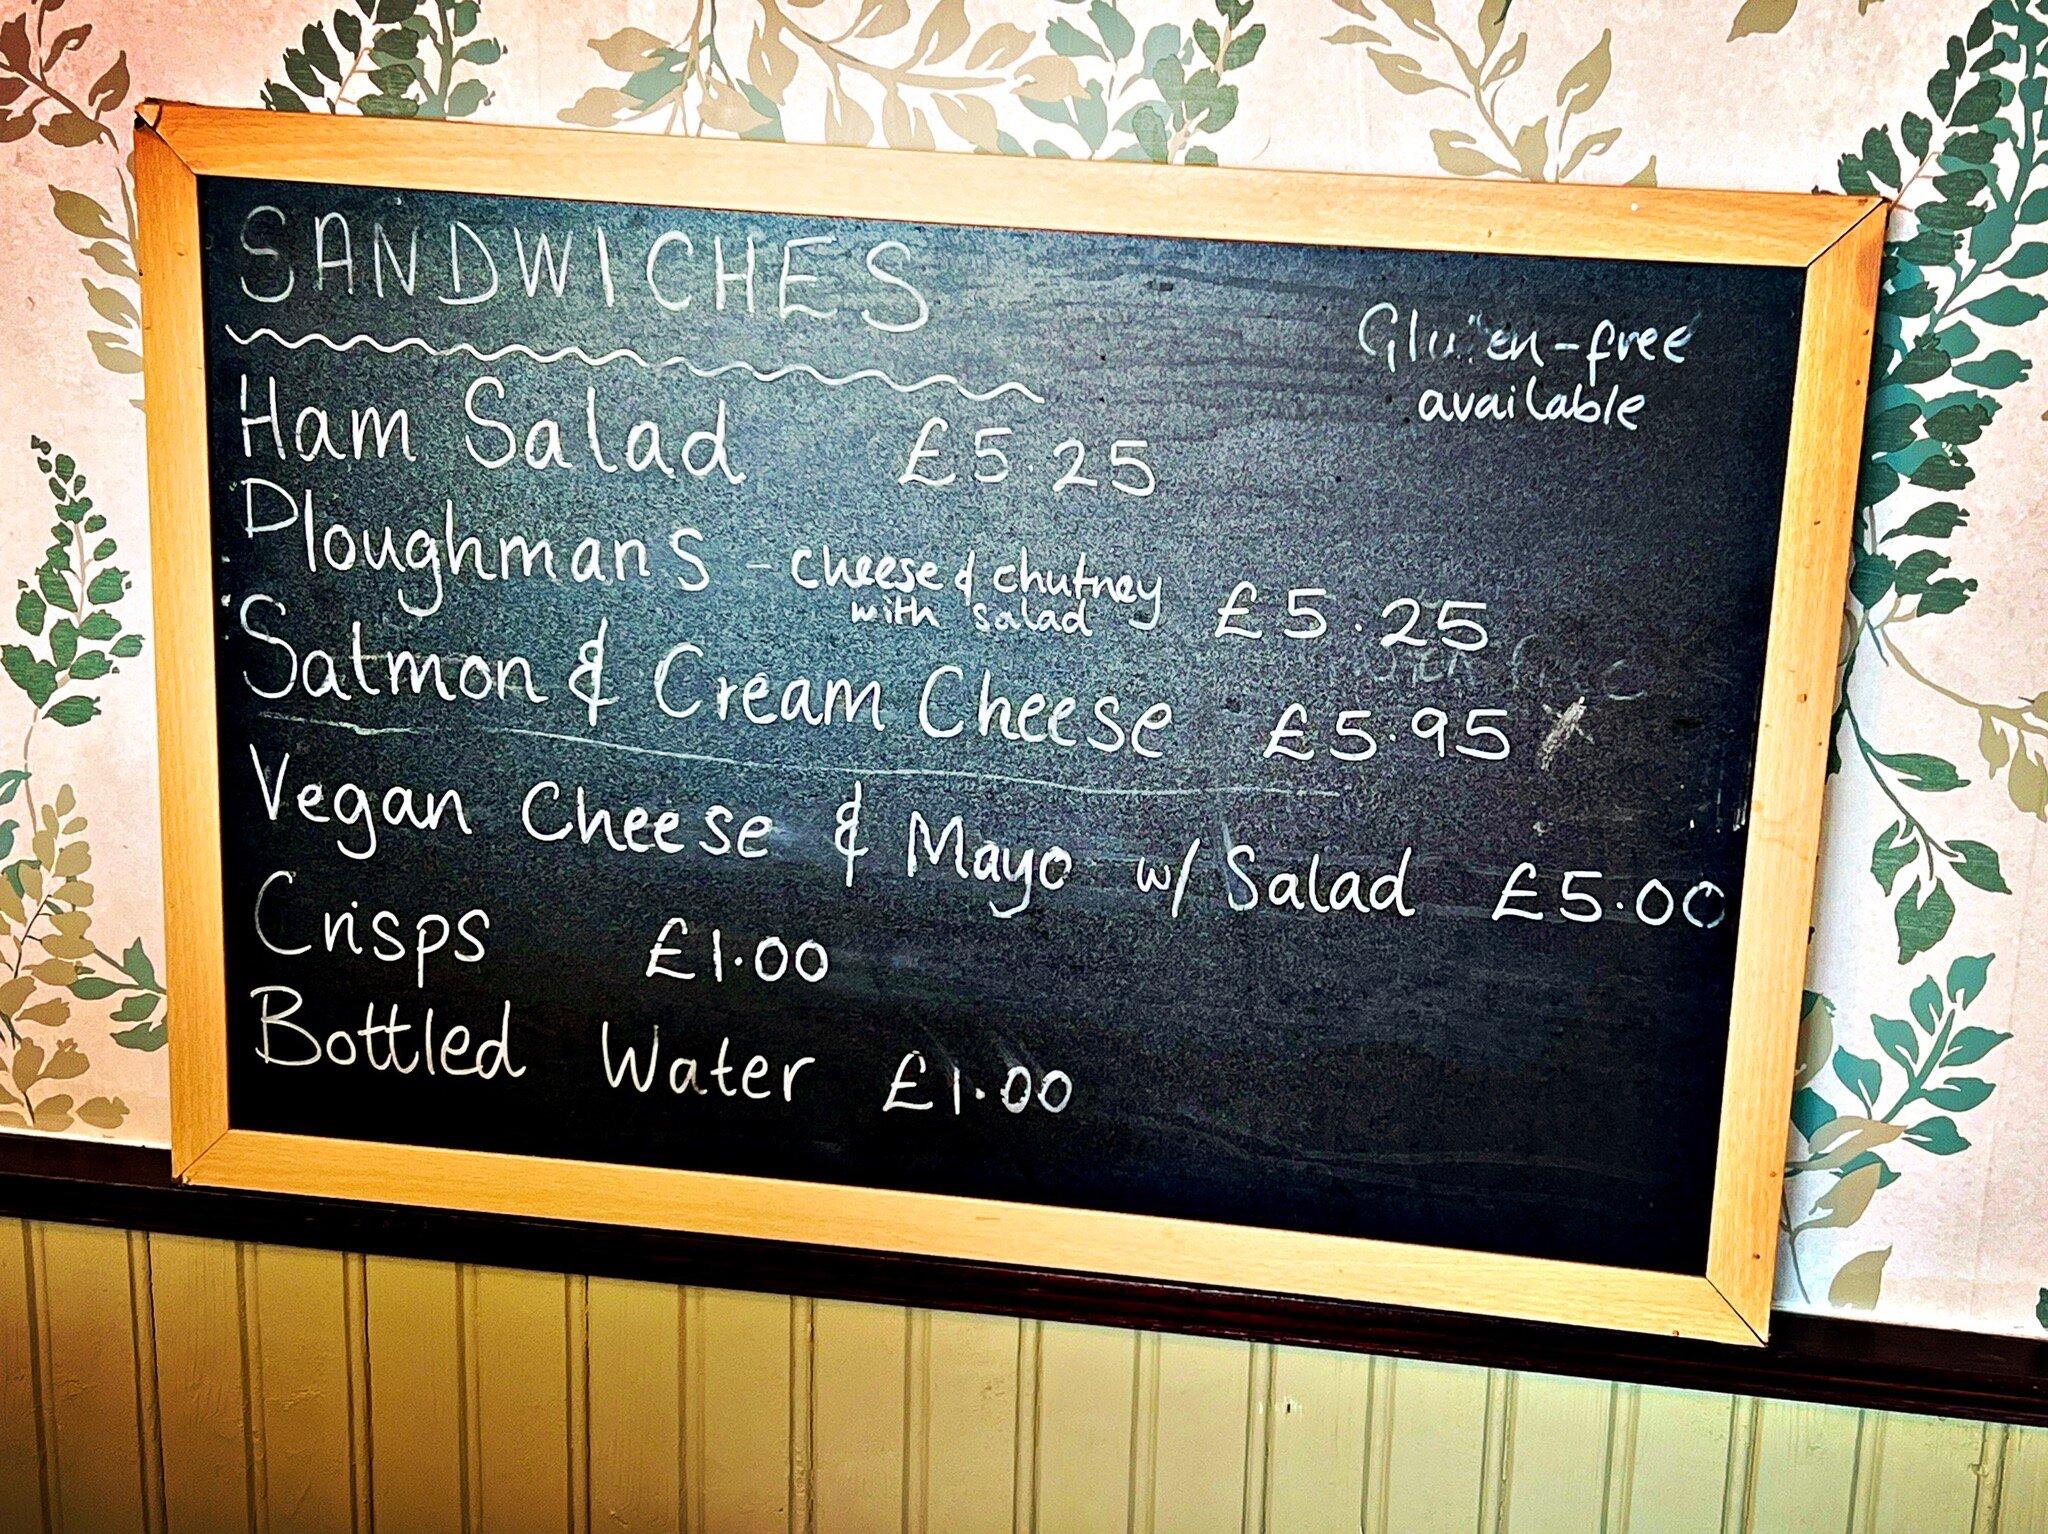 SANDWICHES
Gluten-free
available
Ham Salad £5.25
Ploughmans - cheese & chutney
with salad £5.25
Salmon & Cream Cheese £5.95
Vegan Cheese & Mayo w/ Salad £5.00
Crisps £1.00
Bottled Water £1.00